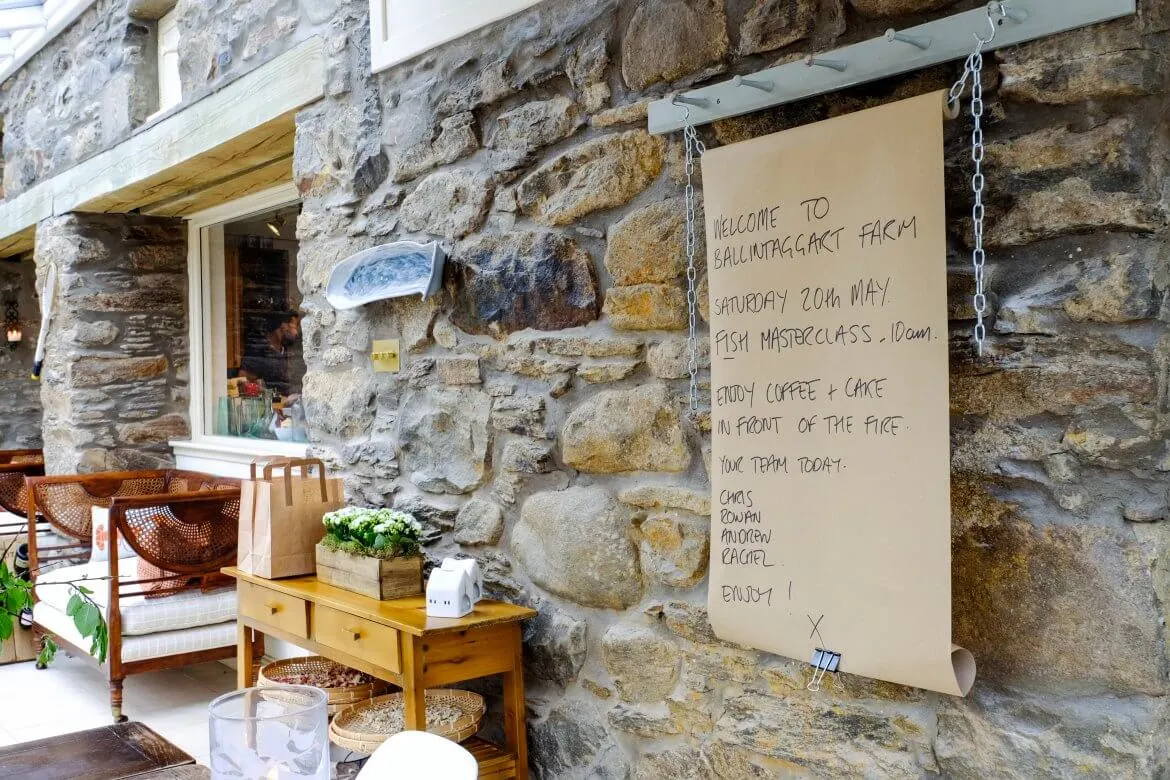 WELCOME TO
BALLINTAGGART FARM
SATURDAY 20th MAY.
FISH MASTERCLASS - 10am.
ENJOY COFFEE + CAKE
IN FRONT OF THE FIRE.
YOUR TEAM TODAY.
CHRIS
ROWAN
ANDREW
RACHEL.
ENJOY!
X